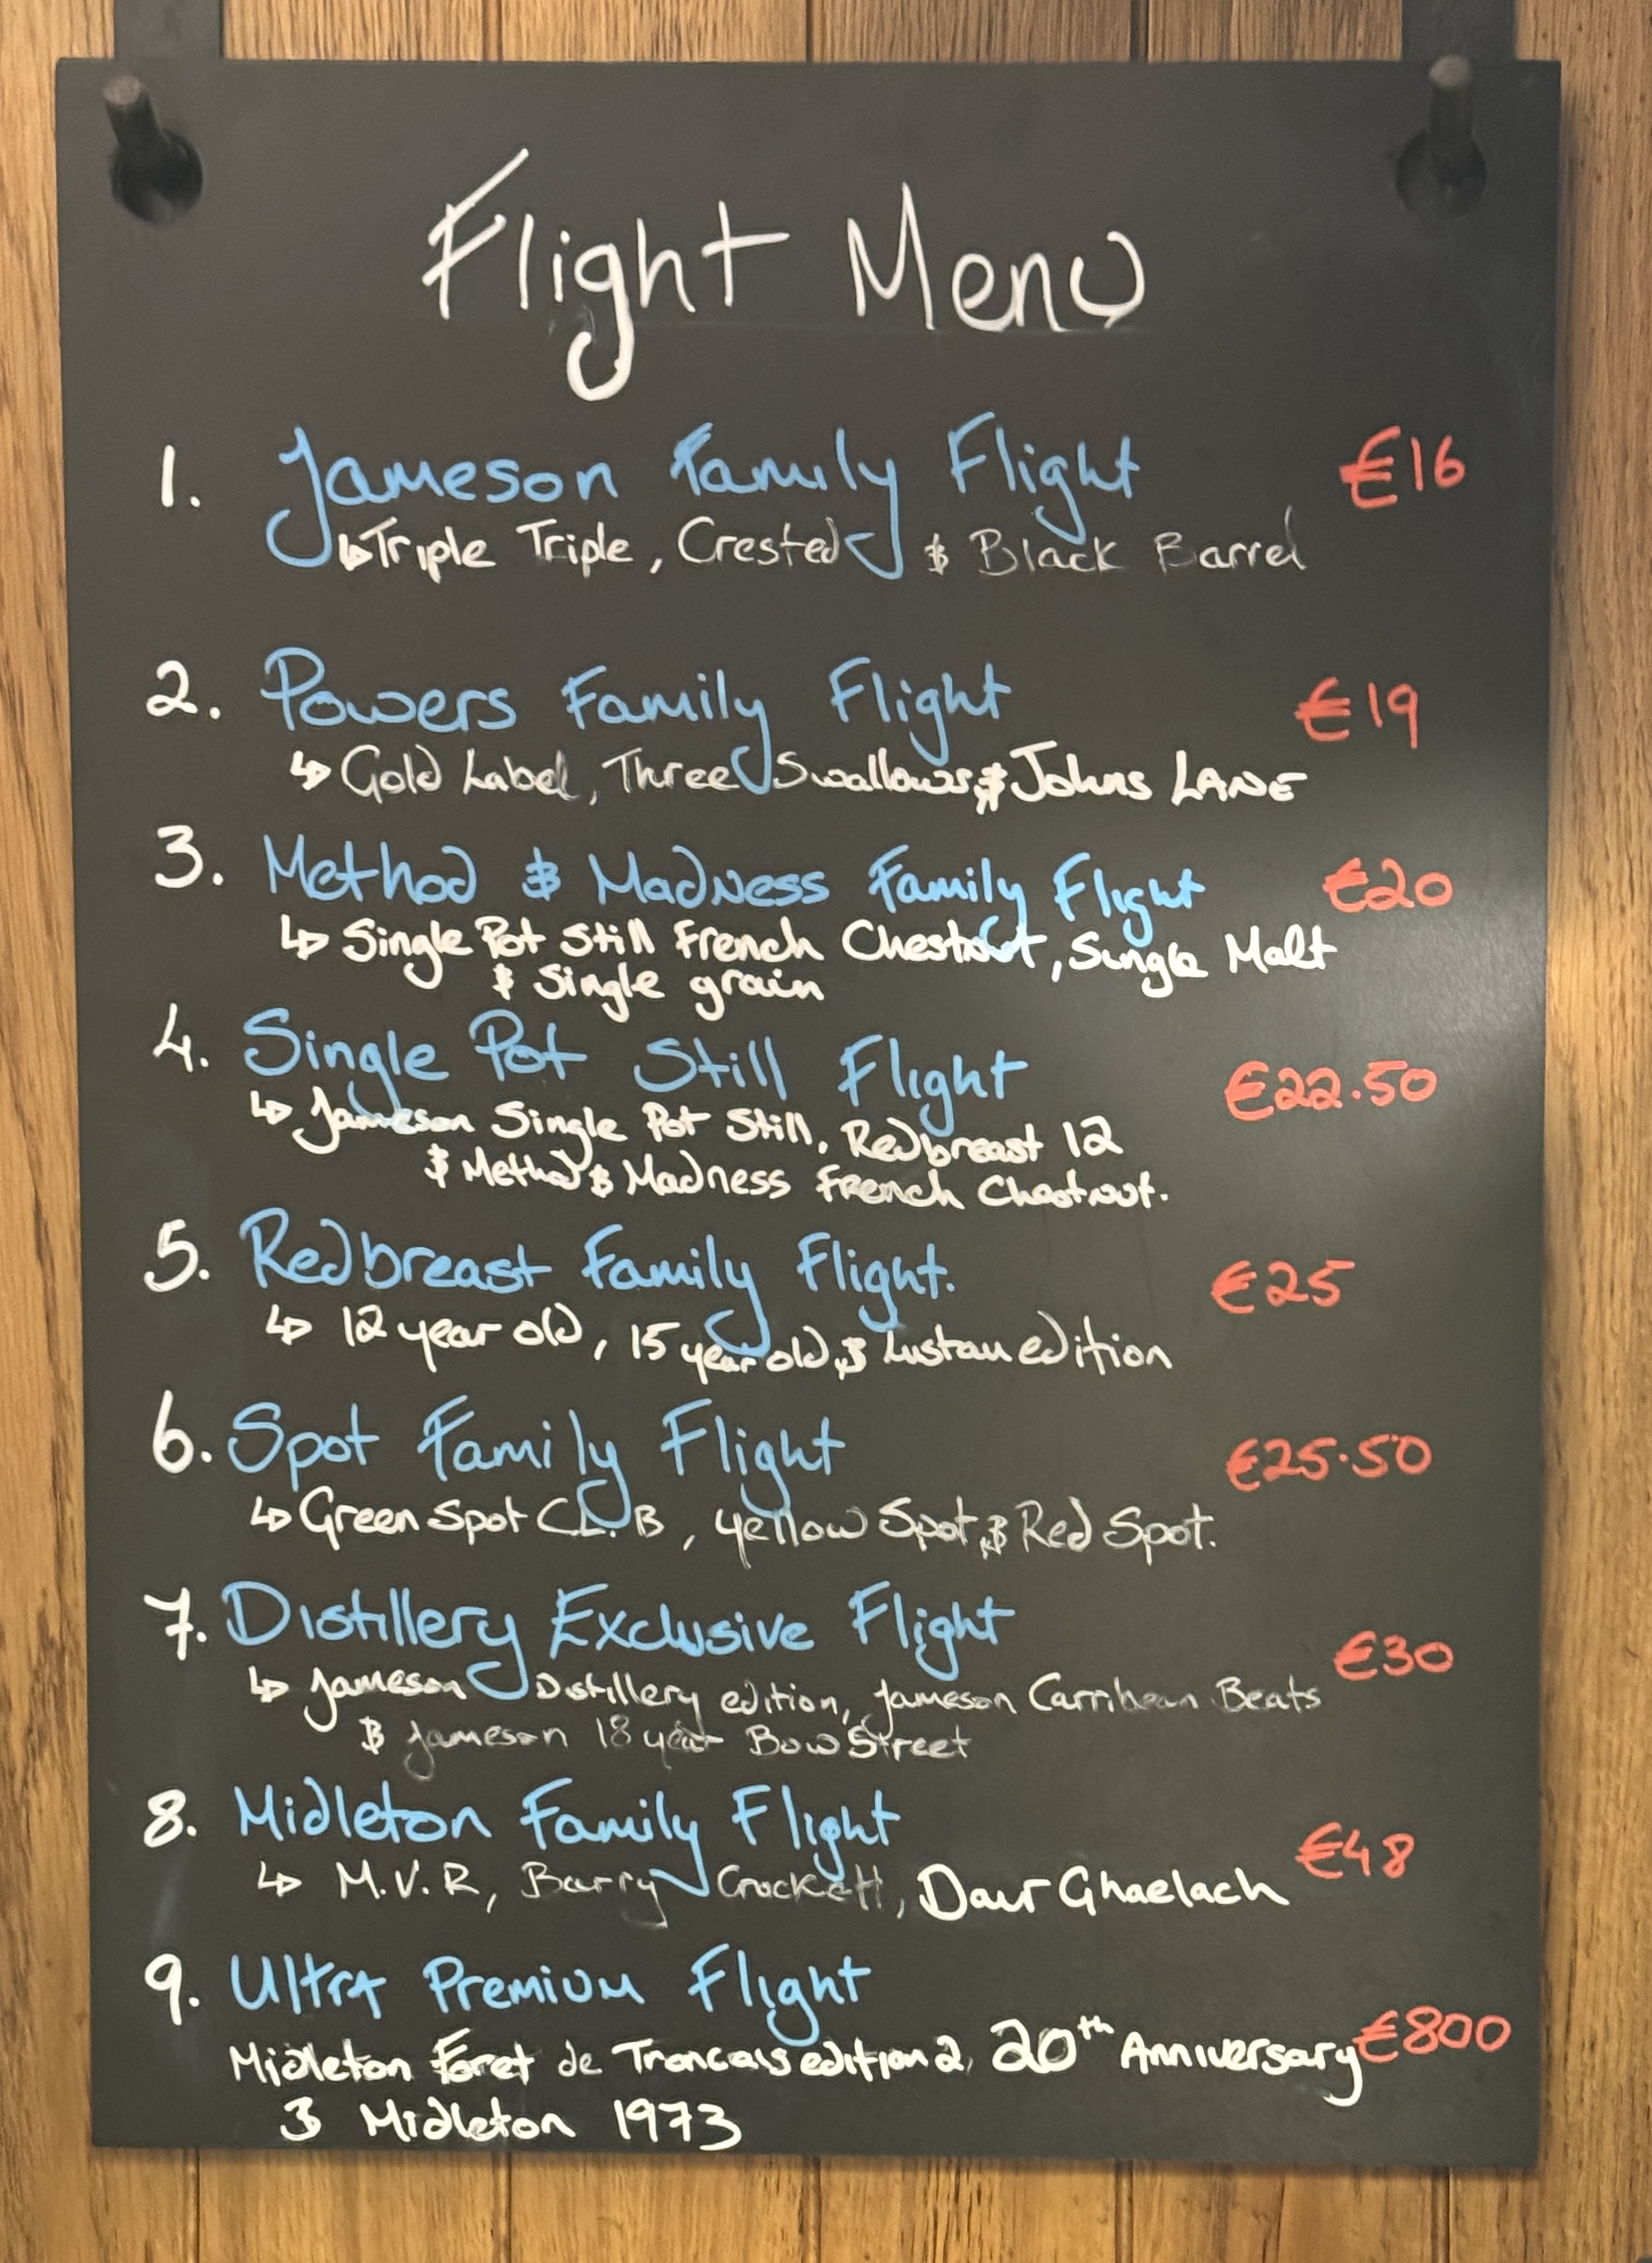 Flight Menu
1. Jameson Family Flight €16
↳ Triple Triple, Crested & Black Barrel
2. Powers Family Flight €19
↳ Gold Label, Three Swallows & Johns LANE
3. Method & Madness Family Flight €20
↳ Single Pot Still French Chestnut, Single Malt
& Single grain
4. Single Pot Still Flight €22.50
↳ Jameson Single Pot Still, Redbreast 12
& Method & Madness French Chestnut.
5. Redbreast Family Flight. €25
↳ 12 year old, 15 year old & Lustau edition
6. Spot Family Flight €25.50
↳ Green Spot C.L.B, Yellow Spot, & Red Spot.
7. Distillery Exclusive Flight €30
↳ Jameson Distillery edition, Jameson Carribean Beats
& Jameson 18 year Bow Street
8. Midleton Family Flight €48
↳ M.V.R, Barry Crockett, Daur Ghaelach
9. Ultra Premium Flight
Midleton Foret de Troncais edition 2, 20th Anniversary €800
& Midleton 1973